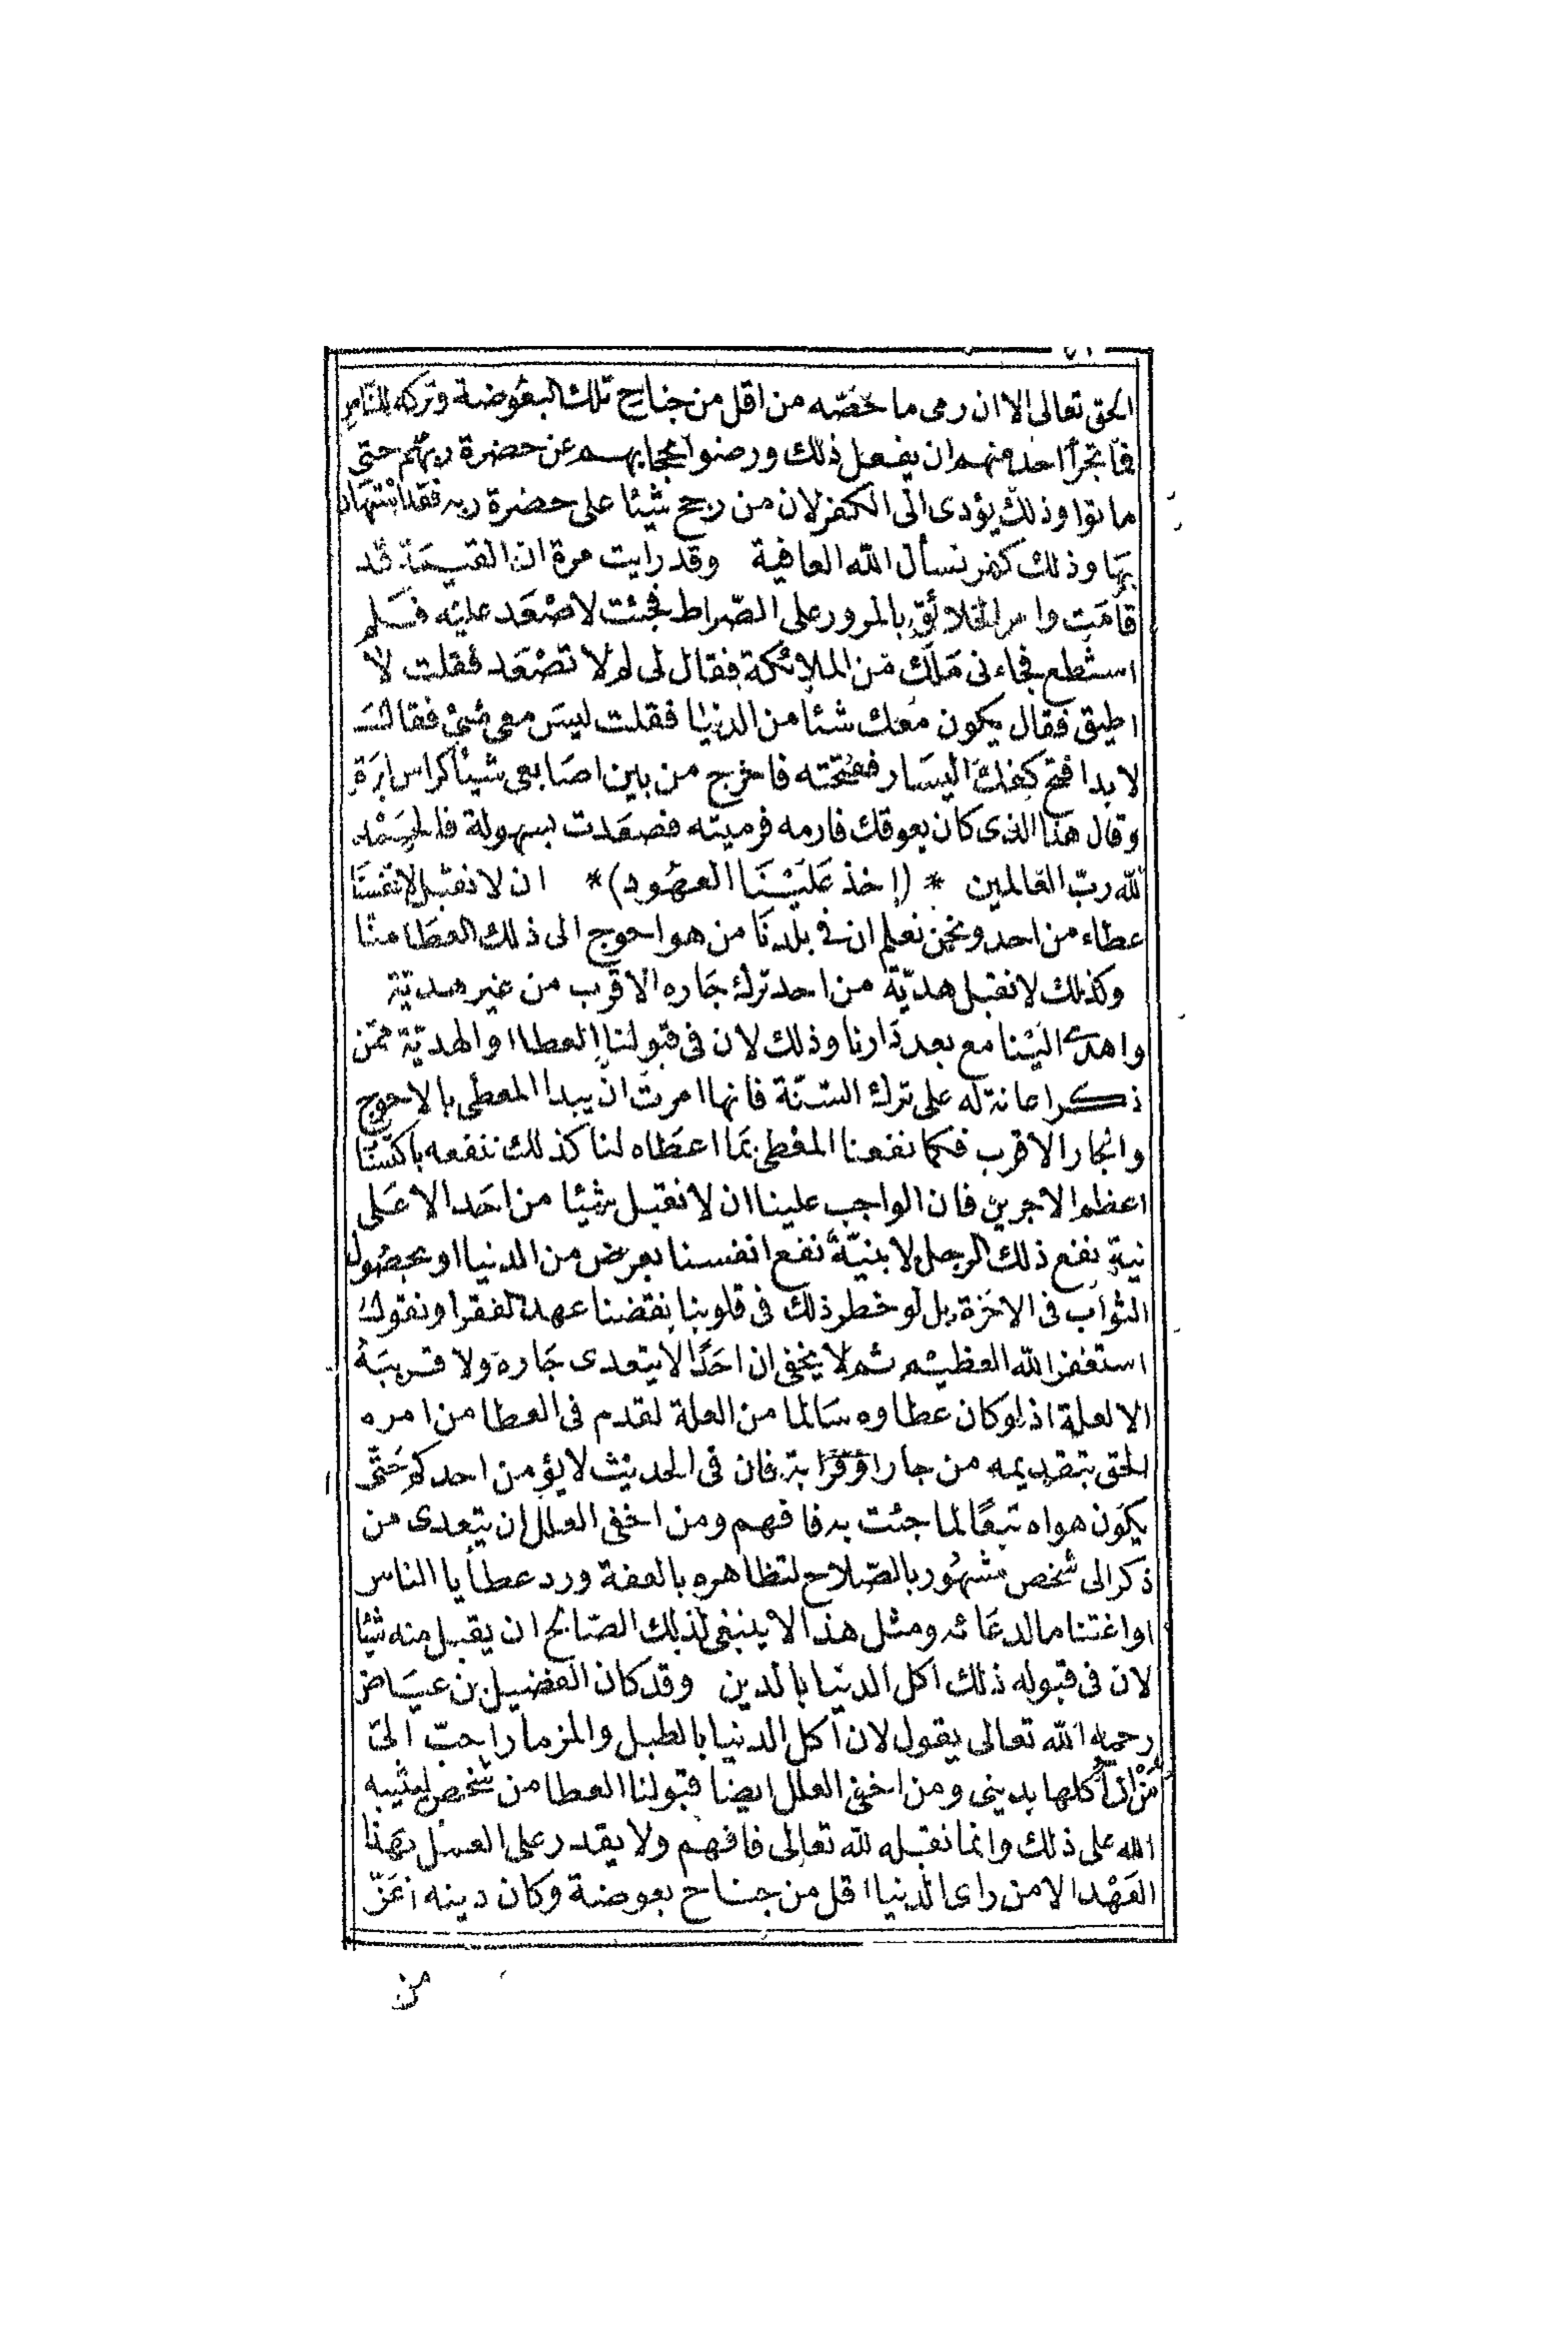 الحق تعالى الا ان رمى ما خصّه من اقل من جناح تلك البعوضة وتركه للناس
فما تجرأ احد منهم ان يفعل ذلك ورضوا بحجابهم عن حضرة ربهم حتى
ماتوا وذلك يؤدى الى الكفر لان من رجح شيئا على حضرة ربه فقد استهان
بها وذلك كفر نسأل الله العافية وقد رايت مرة ان القيمة قد
قامت وامر الخلائق بالمرور على الصّراط فجئت لاصْعَد عليه فلم
استطع فجاءنى مَلَك من الملائكة فقال لى لم لا تصْعَد فقلت لا
اطيق فقال يكون معك شئا من الدنيا فقلت ليس معى شئ فقال
لابد افتح كفك اليسار ففتحته فاخرج من بين اصابعى شيئا كراس ابرة
وقال هذا الذى كان يعوقك فارمه فرميته فصعدت بسهولة فالحمد
لله ربّ العالمين * (اخذ عَلَيْنَا العهود) * ان لا نقبل لانفسنا
عطاء من احد ونحن نعلم ان فى بلدنا من هو احوج الى ذلك العطا منا
وكذلك لا نقبل هديّة من احد ترك جاره الاقرب من غير هديّة
واهدى الينا مع بعد دارنا وذلك لان فى قبولنا العطا او الهديّة ممّن
ذكر اعانة له على ترك السّنّة فانها امرت ان يبدا المعطى بالاحوج
والجار الاقرب فكما نفعنا المعطى بما اعطاه لنا كذلك ننفعه باكتسابنا
اعظم الاجرين فان الواجب علينا ان لا نقبل شيئا من احد الا على
نية نفع ذلك الرجل لا بنيّة نفع انفسنا بعرض من الدنيا او بحصول
الثواب فى الاخرة بل لو خطر ذلك فى قلوبنا نقضنا عهد الفقرا ونقول
استغفر الله العظيم ثم لا يخفى ان احدًا لا يتعدى جاره ولا قريبه
الا لعلة اذ لو كان عطاوه سالما من العلة لقدم فى العطا من امره
الحق بتقديمه من جار او قرابة فان فى الحديث لا يؤمن احدكم حتّى
يكون هواه تبعًا لما جئت به فافهم ومن اخفى العلل ان يتعدى من
ذكر الى شخص مشهور بالصّلاح لتظاهره بالعفة ورد عطايا الناس
او اغتناما لدعائه ومثل هذا لا ينبغى لذلك الصّالح ان يقبل منه شيئا
لان فى قبوله ذلك اكل الدنيا بالدين وقد كان الفضيل بن عياض
رحمه الله تعالى يقول لان آكل الدنيا بالطبل والمزمار احبّ الىّ
من ان آكلها بدينى ومن اخفى العلل ايضا قبولنا العطا من شخص ليثيبه
الله على ذلك وانما نقبله لله تعالى فافهم ولا يقدر على العمل بهذا
العَهْد الا من راى الدنيا اقل من جناح بعوضة وكان دينه اعزّ
من